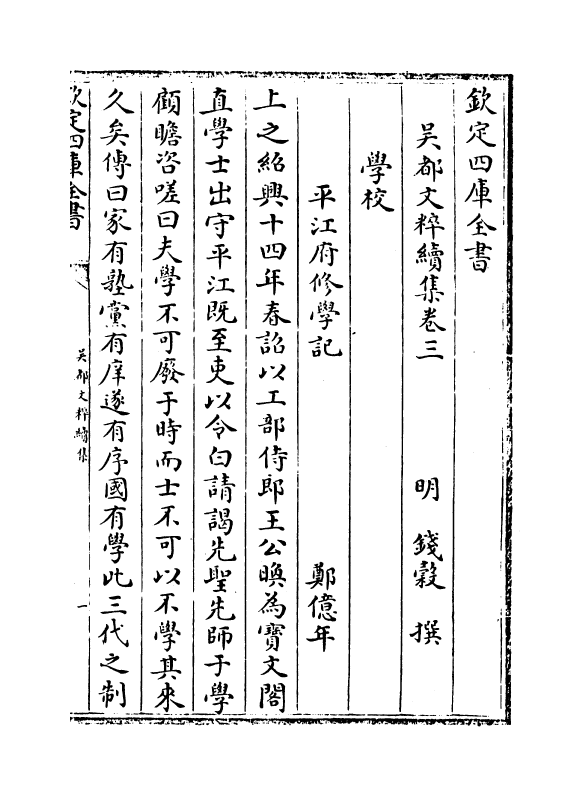 欽定四庫全書
吳都文粹續集卷三
明 錢穀 撰
學校
平江府修學記
鄭億年
上之紹興十四年春詔以工部侍郎王公㬇為寶文閣
直學士出守平江既至吏以令白請謁先聖先師于學
顧瞻咨嗟曰夫學不可廢于時而士不可以不學其來
久矣傳曰家有塾黨有庠遂有序國有學此三代之制
欽定四庫全書
吳都文粹續集
一